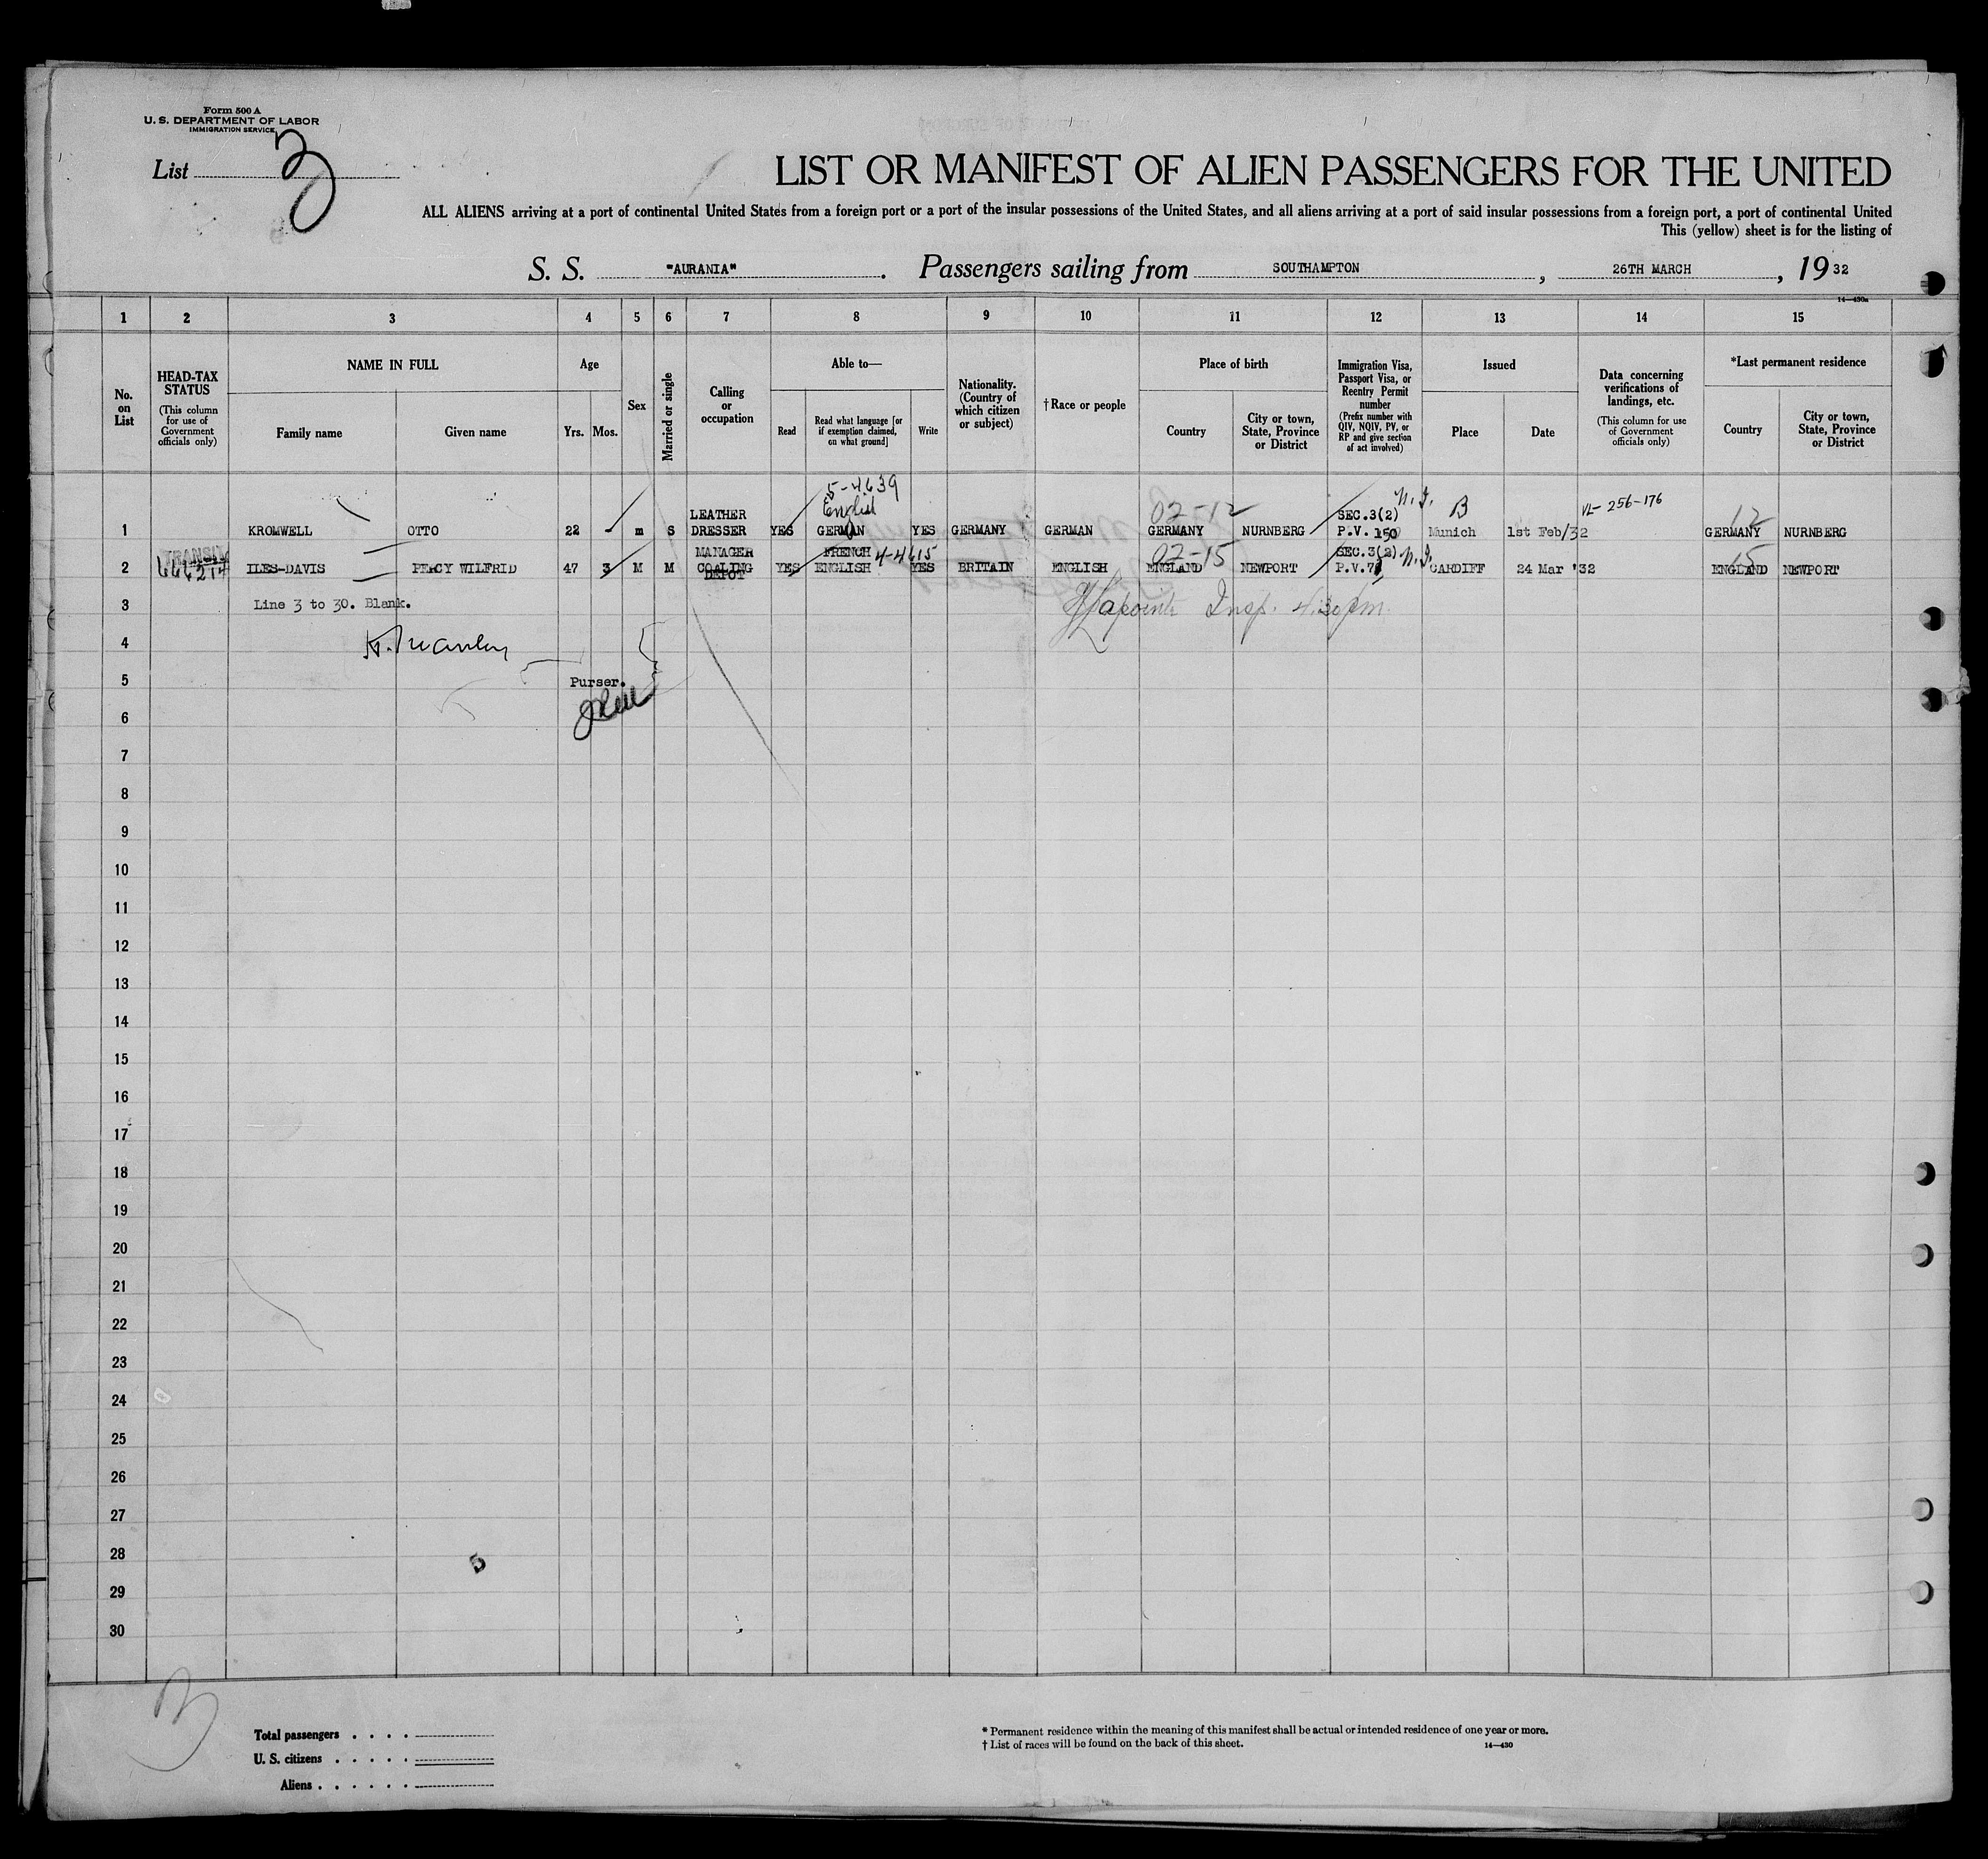 Form 500 A
U. S. DEPARTMENT OF LABOR
IMMIGRATION SERVICE
List 3
LIST OR MANIFEST OF ALIEN PASSENGERS FOR THE UNITED
ALL ALIENS arriving at a port of continental United States from a foreign port or a port of the insular possessions of the United States, and all aliens arriving at a port of said insular possessions from a foreign port, a port of continental United
This (yellow) sheet is for the listing of
S. S. "AURANIA". Passengers sailing from SOUTHAMPTON, 26TH MARCH, 19 32
14—430a
1 2 3 4 5 6 7 8 9 10 11 12 13 14 15
No. on List
HEAD-TAX STATUS
(This column for use of Government officials only)
NAME IN FULL
Family name
Given name
Age
Yrs.
Mos.
Sex
Married or single
Calling or occupation
Able to—
Read
Read what language [or if exemption claimed, on what ground]
Write
Nationality. (Country of which citizen or subject)
†Race or people
Place of birth
Country
City or town, State, Province or District
Immigration Visa, Passport Visa, or Reentry Permit number
(Prefix number with QIV, NQIV, PV, or RP and give section of act involved)
Issued
Place
Date
Data concerning verifications of landings, etc.
(This column for use of Government officials only)
*Last permanent residence
Country
City or town, State, Province or District
5-4639
English
02-12
N.I.
B
VL- 256-176
12
1 KROMWELL OTTO 22 - m S LEATHER DRESSER YES GERMAN YES GERMANY GERMAN GERMANY NURNBERG SEC.3(2) P.V. 150 Munich 1st Feb/32 GERMANY NURNBERG
TRANSIT
4-4615
02-15
N.I.
15
2 ILES-DAVIS PERCY WILFRID 47 3 M M MANAGER COALING DEPOT YES FRENCH ENGLISH YES BRITAIN ENGLISH ENGLAND NEWPORT SEC.3(2) P.V.71 CARDIFF 24 Mar '32 ENGLAND NEWPORT
3 Line 3 to 30. Blank.
Lapointe Insp. 4.30pm
4
5 Purser.
6
7
8
9
10
11
12
13
14
15
16
17
18
19
20
21
22
23
24
25
26
27
28
5
29
30
3
Total passengers . . . .
U. S. citizens . . . . .
Aliens . . . . . .
* Permanent residence within the meaning of this manifest shall be actual or intended residence of one year or more.
† List of races will be found on the back of this sheet.
14—430